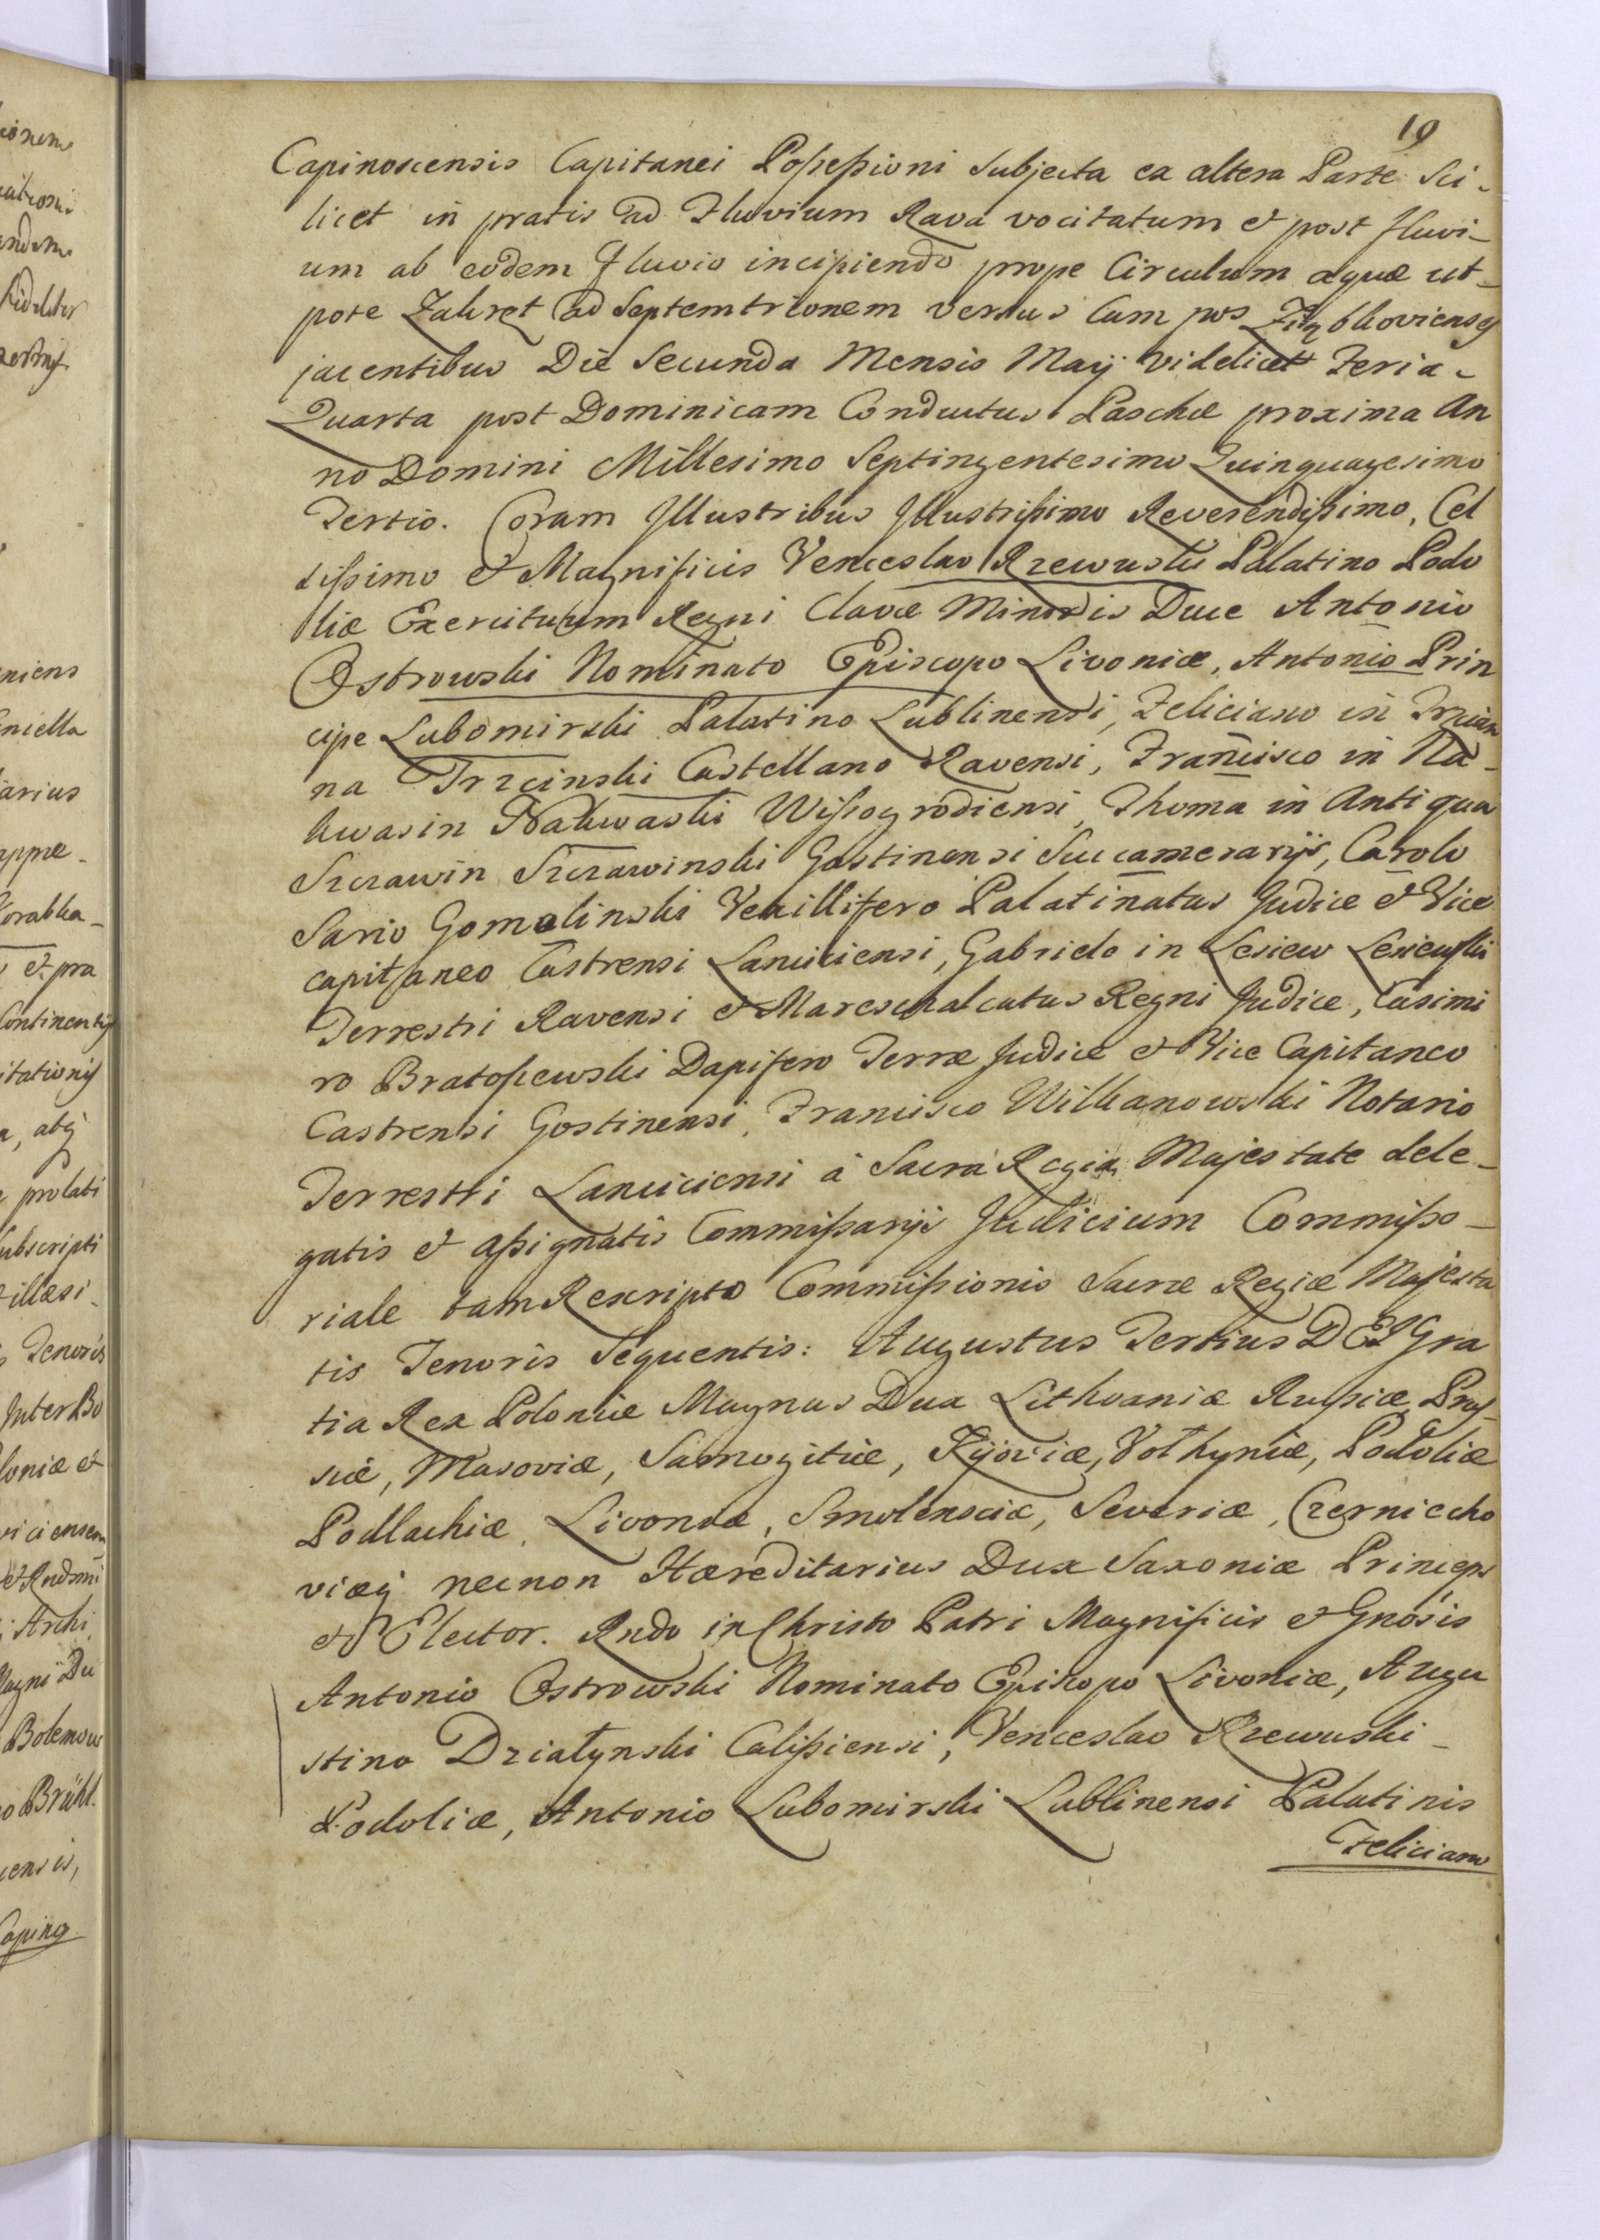 19
Capinoscensis Capitanei Possessioni Subjecta ex altera Parte Sci-
licet in pratis ad Fluvium Rava vocitatum et post fluvi-
um ab eodem Fluvio incipiendo prope Circulum aquæ ut-
pote Zakret ad Septemtrionem versus Cum
jacentibus Die Secunda Mensis Maÿ videlicet Feria-
Quarta post Dominicam Conductus Paschæ proxima An
no Domini Millesimo Septingentesimo Quinquagesimo
Tertio. Coram Illustribus Illustrissimo Reverendissimo, Cel
sissimo et Magnificis Venceslao Rzewuski Palatino Podo
liæ Exercituum Regni Clavæ Minoris Duce Antonio
Ostrowski Nominato Episcopo Livoniæ, Antonio Prin
cipe Lubomirski Palatino Lublinensi, Feliciano in Trzcian
na Trzcinski Castellano Ravensi, Francisco in Na-
kwasin Nakwaski Wissogrodiensi, Thoma in Antiqua
Szczawin Szczawinski Gostinensi Succamerarijs, Carolo
Sario Gomolinski Vexillifero Palatinatus Judice et Vice
capitaneo Castrensi Lanciciensi, Gabriele in Lesiew Lesiewski
Terrestri Ravensi et Mareschalcatus Regni Judice, Casimi
ro Bratoszewski Dapifero Terræ Judice et Vice Capitaneo
Castrensi Gostinensi, Francisco Wilkanowski Notario
Terrestri Lanciciensi à Sacra Regia Majestate dele-
gatis et assignatis Commissarijs Judicium Commisso-
riale tam Rescripto Commissionis Sacræ Regiæ Majesta
tis Tenoris Sequentis: Augustus Tertius DEI Gra
tia Rex Poloniæ Magnus Dux Lithvaniæ Russiæ, Prus-
siæ, Masoviæ, Samogitiæ, Kijoviæ, Volhyniæ, Podoliæ
Podlachiæ, Livoniæ, Smolensciæ, Severiæ, Czerniecho
viæq necnon Hæreditarius Dux Saxoniæ Princeps
et Elector. Rndo in Christo Patri Magnificis et Gnosis
Antonio Ostrowski Nominato Episcopo Livoniæ, Augu
stino Działynski Calissiensi, Venceslao Rzewuski-
Podoliæ, Antonio Lubomirski Lublinensi Palatinis
Feliciano